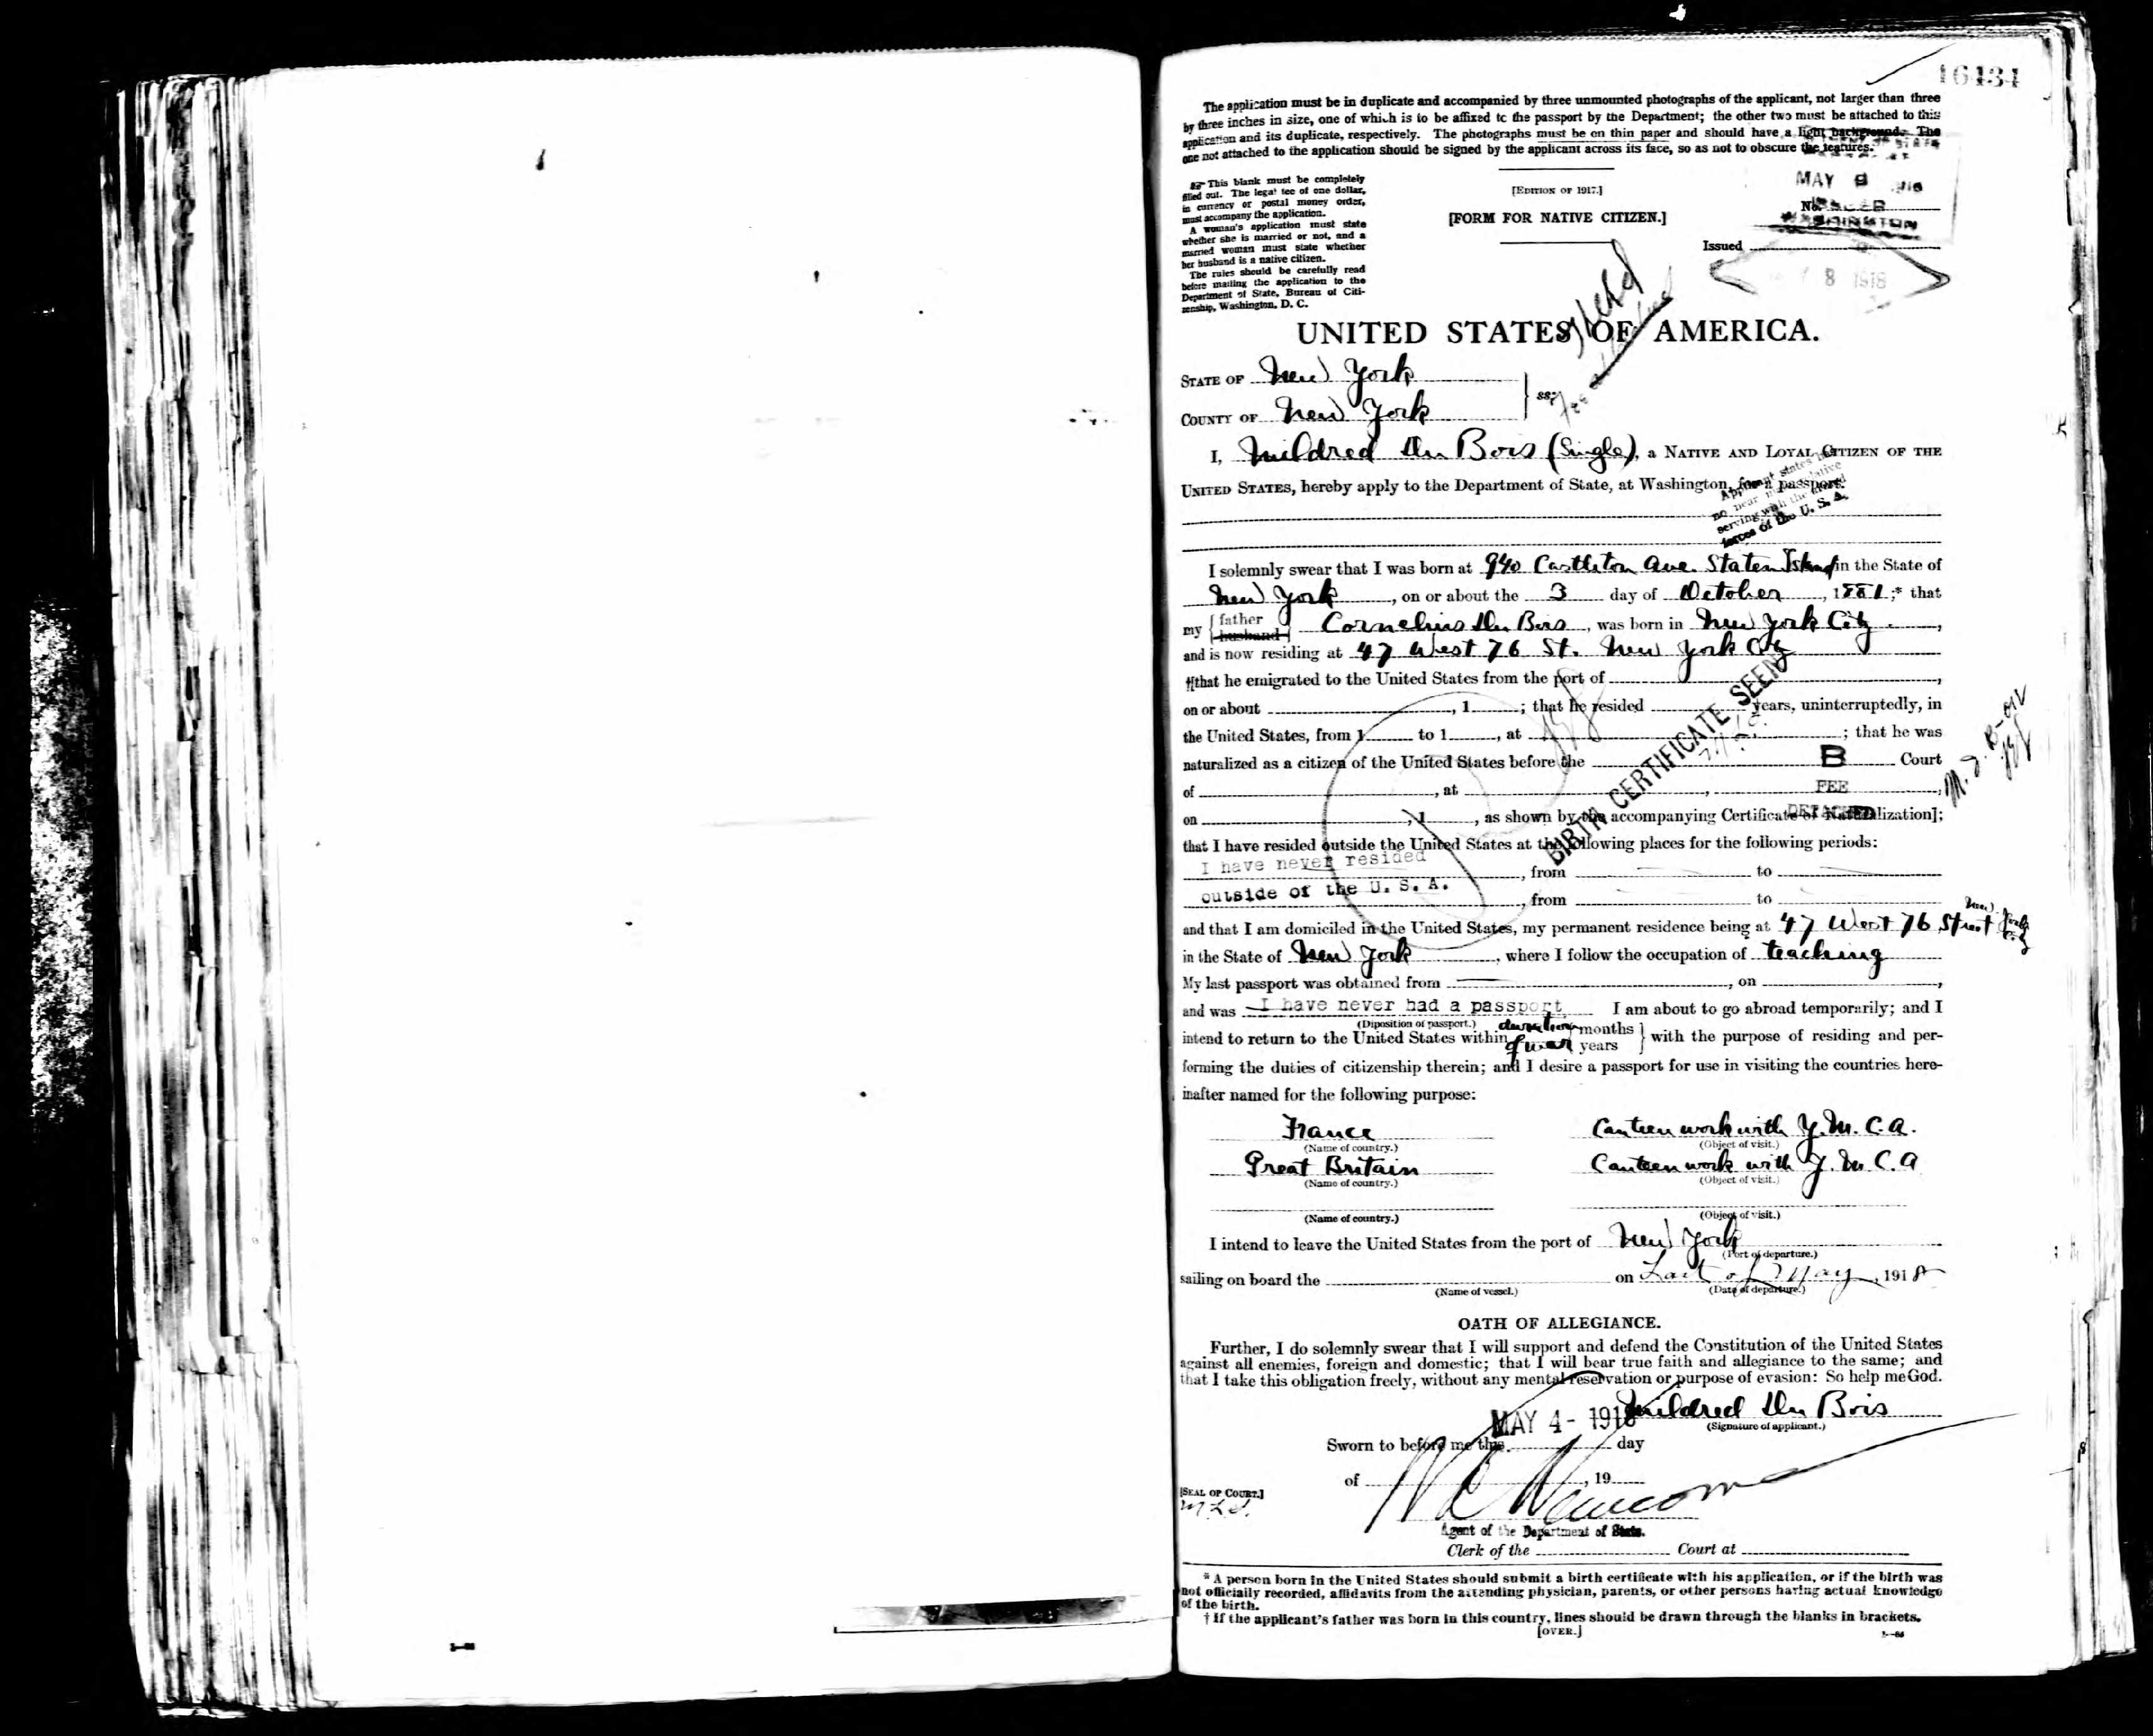 16434
The application must be in duplicate and accompanied by three unmounted photographs of the applicant, not larger than three
by three inches in size, one of which is to be affixed to the passport by the Department; the other two must be attached to this
application and its duplicate, respectively. The photographs must be on thin paper and should have a light background. The
one not attached to the application should be signed by the applicant across its face, so as not to obscure the features.
This blank must be completely
filled out. The legal fee of one dollar,
in currency or postal money order,
must accompany the application.
A woman's application must state
whether she is married or not, and a
married woman must state whether
her husband is a native citizen.
The rules should be carefully read
before mailing the application to the
Department of State, Bureau of Citi-
zenship, Washington, D. C.
[EDITION OF 1917.]
[FORM FOR NATIVE CITIZEN.]
MAY 9
No.
WASHINGTON
Issued
8 1918
UNITED STATES OF AMERICA.
STATE OF New York
COUNTY OF New York
ss:
I, Mildred Du Bois (Single), a NATIVE AND LOYAL CITIZEN OF THE
UNITED STATES, hereby apply to the Department of State, at Washington, for a passport.
Applicant states
no near relative
serving with the armed
forces of the U. S. A.
I solemnly swear that I was born at 940 Castleton Ave. Staten Island in the State of
New York, on or about the 3 day of October, 1881;* that
my { father
husband } Cornelius Du Bois, was born in New York City,
and is now residing at 47 West 76 St. New York City
†[that he emigrated to the United States from the port of ,
on or about , 1 ; that he resided years, uninterruptedly, in
the United States, from 1 to 1 , at ; that he was
naturalized as a citizen of the United States before the B Court
of , at , FEE ,
on , 1 , as shown by the accompanying Certificate of Naturalization];
DETACHED
BIRTH CERTIFICATE SEEN
that I have resided outside the United States at the following places for the following periods:
I have never resided , from to
outside of the U. S. A. , from to
and that I am domiciled in the United States, my permanent residence being at 47 West 76 Street New York City
in the State of New York, where I follow the occupation of teaching
My last passport was obtained from , on ,
and was I have never had a passport I am about to go abroad temporarily; and I
(Diposition of passport.)
intend to return to the United States within duration of war { months
years } with the purpose of residing and per-
forming the duties of citizenship therein; and I desire a passport for use in visiting the countries here-
inafter named for the following purpose:
France Canteen work with Y.M.C.A.
(Name of country.) (Object of visit.)
Great Britain Canteen work with Y.M.C.A
(Name of country.) (Object of visit.)
(Name of country.) (Object of visit.)
I intend to leave the United States from the port of New York
(Port of departure.)
sailing on board the on Last of May, 1918
(Name of vessel.) (Date of departure.)
OATH OF ALLEGIANCE.
Further, I do solemnly swear that I will support and defend the Constitution of the United States
against all enemies, foreign and domestic; that I will bear true faith and allegiance to the same; and
that I take this obligation freely, without any mental reservation or purpose of evasion: So help me God.
Mildred Du Bois
(Signature of applicant.)
MAY 4- 1918
Sworn to before me this day
of , 19
[SEAL OF COURT.]
Agent of the Department of State.
Clerk of the Court at
* A person born in the United States should submit a birth certificate with his application, or if the birth was
not officially recorded, affidavits from the attending physician, parents, or other persons having actual knowledge
of the birth.
† If the applicant's father was born in this country, lines should be drawn through the blanks in brackets.
[OVER.]